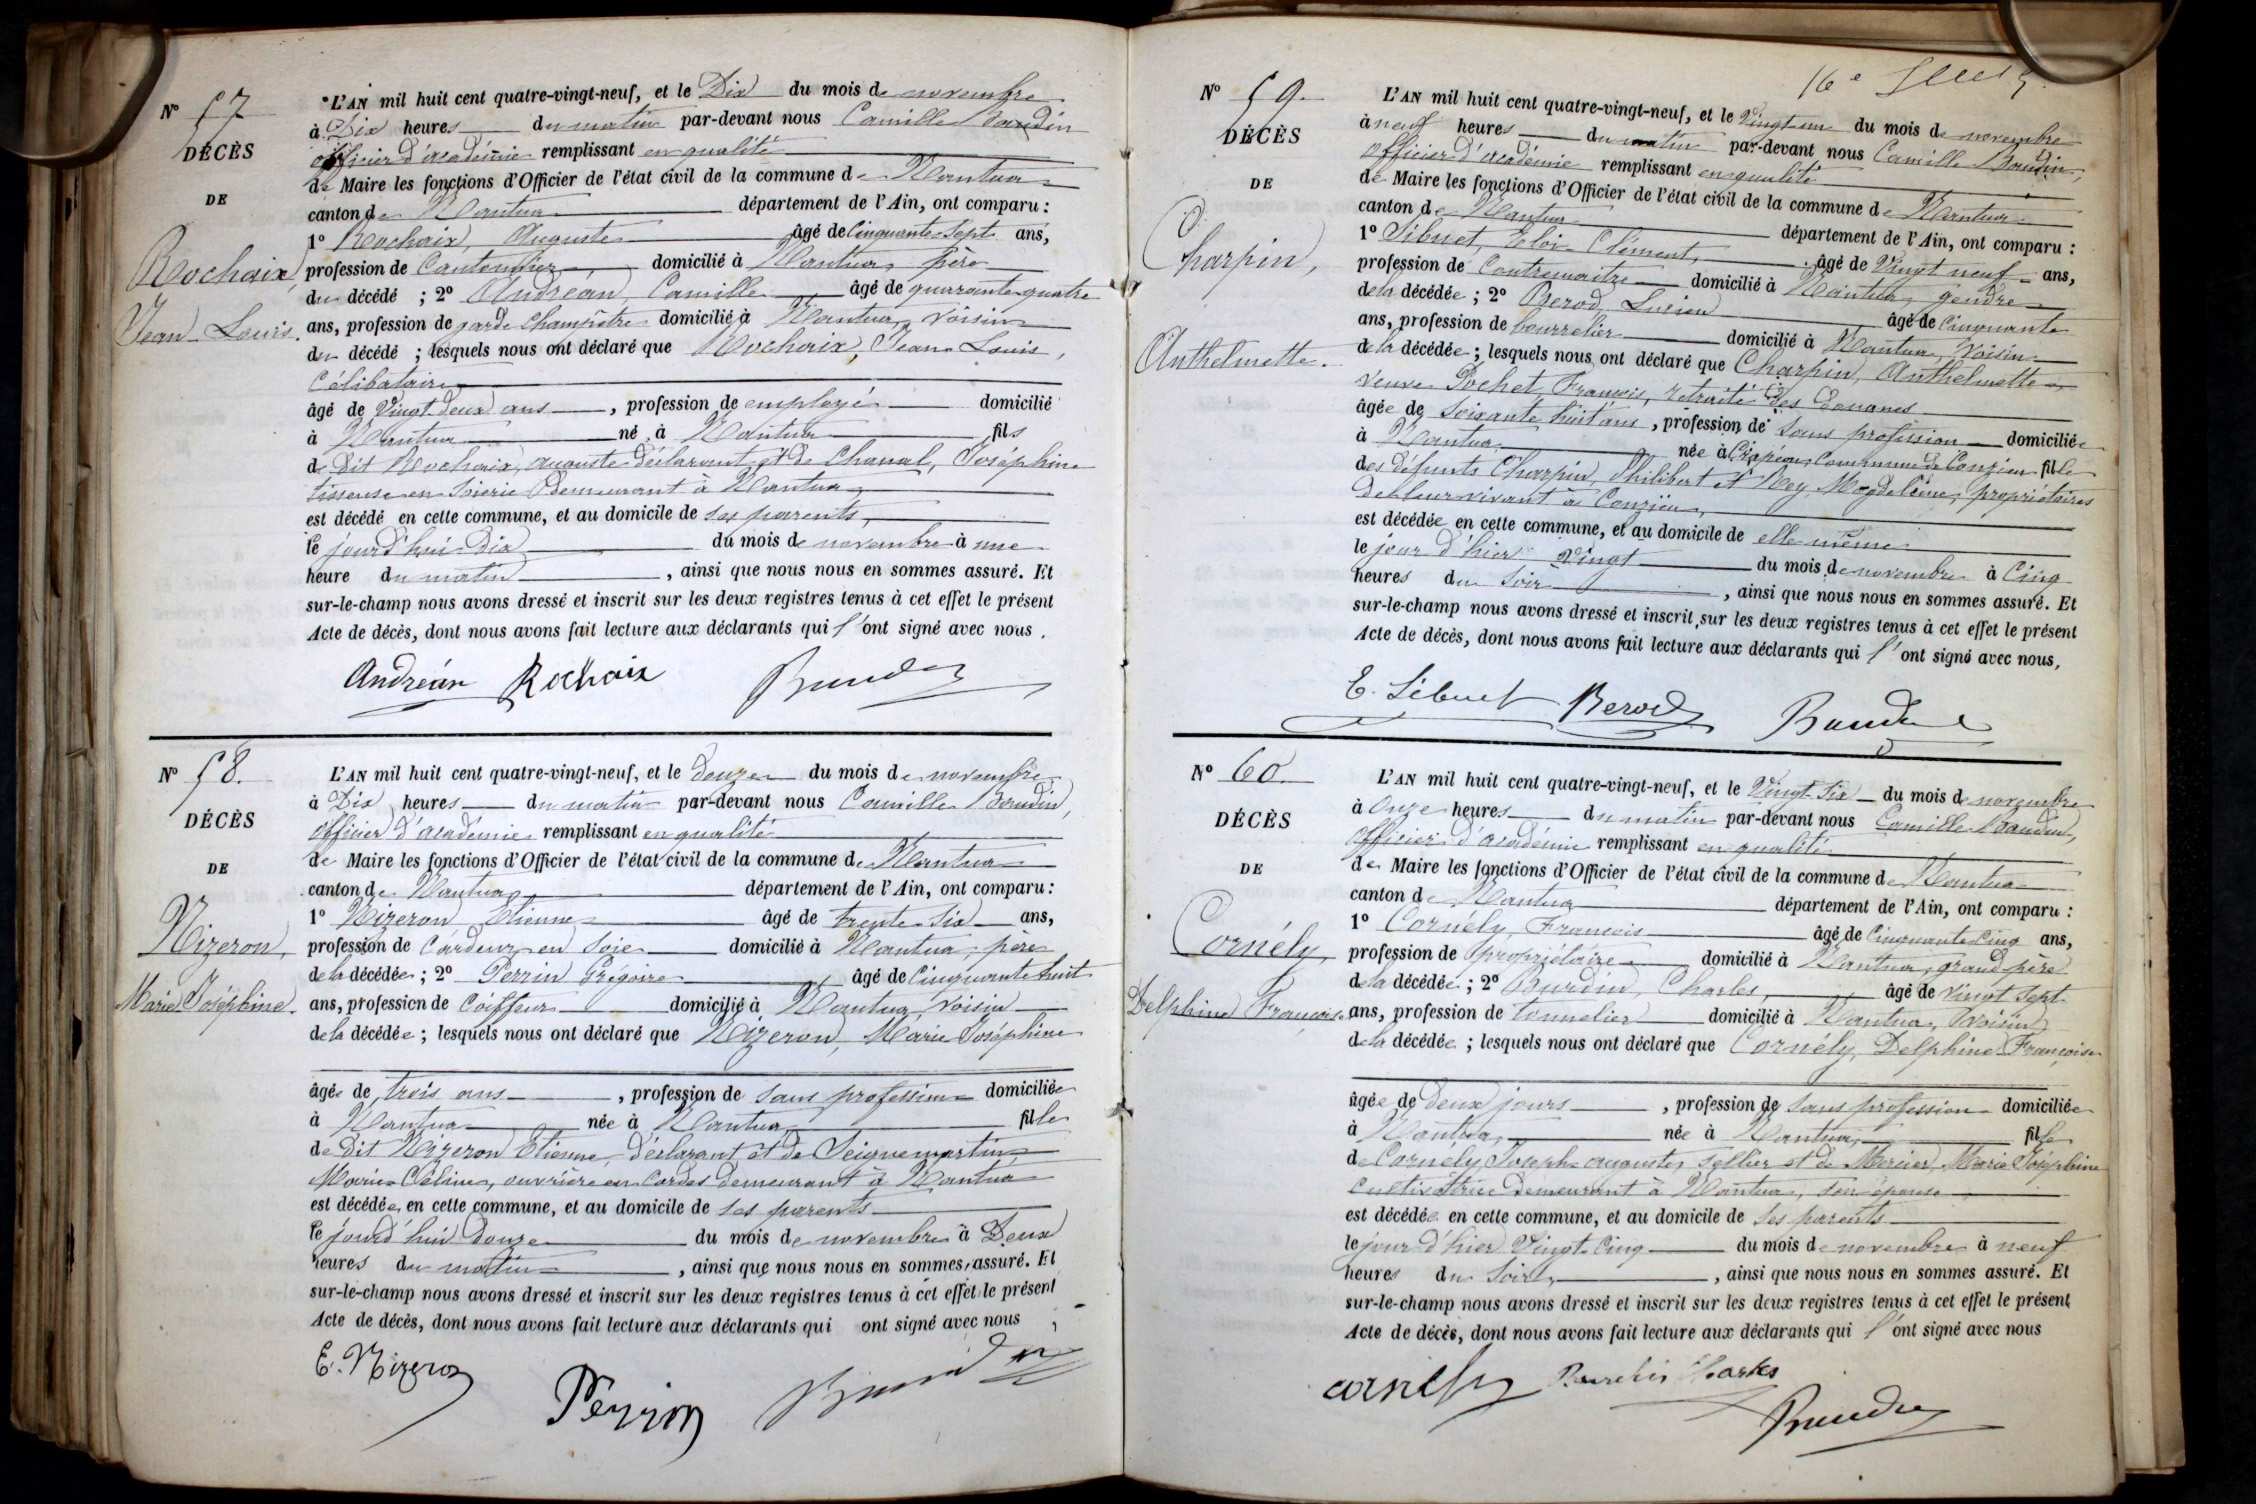 N° 57
DÉCÈS
DE
Rochaix,
Jean Louis.
L'AN mil huit cent quatre-vingt-neuf, et le Dix du mois de novembre
à Dix heures du matin par-devant nous Camille Baudin
officier d'académie remplissant en qualité
de Maire les fonctions d'Officier de l'état civil de la commune de Nantua
canton de Nantua département de l'Ain, ont comparu :
1° Rochaix, Auguste âgé de Cinquante-Sept ans,
profession de Cantonnier domicilié à Nantua, père
du décédé ; 2° Andréan, Camille âgé de quarante-quatre
ans, profession de garde champêtre domicilié à Nantua, voisin
du décédé ; lesquels nous ont déclaré que Rochaix, Jean Louis,
Célibataire
âgé de Vingt deux ans , profession de employé domicilié
à Nantua né à Nantua fils
de Dit Rochaix, auguste déclarant et de Chanal, Joséphine
tisseuse en Soierie demeurant à Nantua
est décédé en cette commune, et au domicile de ses parents,
le jourd'hui Dix du mois de novembre à une
heure du matin , ainsi que nous nous en sommes assuré. Et
sur-le-champ nous avons dressé et inscrit sur les deux registres tenus à cet effet le présent
Acte de décès, dont nous avons fait lecture aux déclarants qui l'ont signé avec nous.
Andréan Rochaix Baudin
N° 58.
DÉCÈS
DE
Nizeron,
Marie Joséphine.
L'AN mil huit cent quatre-vingt-neuf, et le douze du mois de novembre
à Dix heures du matin par-devant nous Camille Baudin,
officier d'académie remplissant en qualité
de Maire les fonctions d'Officier de l'état civil de la commune de Nantua
canton de Nantua département de l'Ain, ont comparu :
1° Nizeron, Etienne âgé de trente six ans,
profession de Cardeur en Soie domicilié à Nantua, père
de la décédée ; 2° Perrin Grégoire âgé de Cinquante huit
ans, profession de Coiffeur domicilié à Nantua, voisin
de la décédée ; lesquels nous ont déclaré que Nizeron, Marie Joséphine
âgée de trois ans , profession de Sans profession domiciliée
à Nantua née à Nantua fille
de Dit Nizeron Etienne, déclarant et de Seignemartin,
Marie Céline, ouvrière en Cordes demeurant à Nantua
est décédée en cette commune, et au domicile de ses parents
le jourd'hui douze du mois de novembre à Deux
heures du matin , ainsi que nous nous en sommes assuré. Et
sur-le-champ nous avons dressé et inscrit sur les deux registres tenus à cet effet le présent
Acte de décès, dont nous avons fait lecture aux déclarants qui ont signé avec nous
E. Nizeron
Perrin Baudin
16e
N° 59.
DÉCÈS
DE
Charpin,
Anthelmette.
L'AN mil huit cent quatre-vingt-neuf, et le Vingt-un du mois de novembre
à neuf heures du matin par-devant nous Camille Baudin,
officier d'académie remplissant en qualité
de Maire les fonctions d'Officier de l'état civil de la commune de Nantua
canton de Nantua département de l'Ain, ont comparu :
1° Sibuet, Eloi Clément, âgé de Vingt neuf ans,
profession de Contremaître domicilié à Nantua, gendre
de la décédée ; 2° Berod, Lucien âgé de Cinquante
ans, profession de bourrelier domicilié à Nantua, Voisin
de la décédée ; lesquels nous ont déclaré que Charpin, Anthelmette
veuve Pochet, François, retraité des Douanes
âgée de Soixante huit ans , profession de Sans profession domiciliée
à Nantua née à Crapéou Commune de Conzieu fille
des défunts Charpin, Philibert et Rey, Magdeleine, propriétaires
de leur vivant à Conzieu,
est décédée en cette commune, et au domicile de elle même
le jour d'hier Vingt du mois de novembre à Cinq
heures du Soir , ainsi que nous nous en sommes assuré. Et
sur-le-champ nous avons dressé et inscrit sur les deux registres tenus à cet effet le présent
Acte de décès, dont nous avons fait lecture aux déclarants qui l'ont signé avec nous,
E. Sibuet Berod Baudin
N° 60.
DÉCÈS
DE
Cornély,
Delphine Françoise
L'AN mil huit cent quatre-vingt-neuf, et le Vingt-Six du mois de novembre
à Onze heures du matin par-devant nous Camille Baudin,
officier d'académie remplissant en qualité
de Maire les fonctions d'Officier de l'état civil de la commune de Nantua
canton de Nantua département de l'Ain, ont comparu :
1° Cornély, François âgé de Cinquante Cinq ans,
profession de propriétaire domicilié à Nantua, grand père
de la décédée ; 2° Burdin, Charles, âgé de Vingt Sept
ans, profession de tonnelier domicilié à Nantua, Voisin
de la décédée ; lesquels nous ont déclaré que Cornély, Delphine Françoise
âgée de deux jours , profession de Sans profession domiciliée
à Nantua, née à Nantua, fille
de Cornély, Joseph auguste, Sellier et de Mercier, Marie Joséphine
Cultivatrice demeurant à Nantua, son épouse
est décédée en cette commune, et au domicile de ses parents
le jour d'hier Vingt-Cinq du mois de novembre à neuf
heures du Soir , ainsi que nous nous en sommes assuré. Et
sur-le-champ nous avons dressé et inscrit sur les deux registres tenus à cet effet le présent
Acte de décès, dont nous avons fait lecture aux déclarants qui l'ont signé avec nous
Cornély Burdin Charles
Baudin